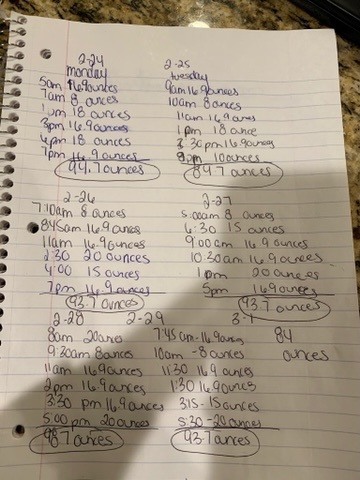 2-24
monday
5am 16.9ounces
7am 8 ounces
1pm 18 ounces
3pm 16.9ounces
4pm 18 ounces
7pm 16.9 ounces
94.7ounces
2-25
tuesday
9am 16.9ounces
10am 8 ounces
11am 16.9ounces
1pm 18 ounce
3:30pm 16.9ounces
9pm 10ounces
84.7 ounces
2-26
7:10am 8 ounces
845am 16.9 ounces
11am 16.9ounces
2:30 20 ounces
4:00 15 ounces
7pm 16.9 ounces
93.7 ounces
2-27
5:00am 8 ounces
6:30 15 ounces
9:00am 16.9 ounces
10:30am 16.9ounces
1pm 20 ounces
5pm 16.9ounces
93.7ounces
2-28
8am 20oz
9:30am 8ounces
11am 16.9ounces
2pm 16.9 ounces
3:30 pm 16.9ounces
5:00 pm 20 ounces
98.7 ounces
2-29
7:45am-16.9ounces
10am -8 ounces
11:30 16.9 ounces
1:30 16.9ounces
3:15-15ounces
5:30-20ounces
93.7ounces
3-1
84
ounces